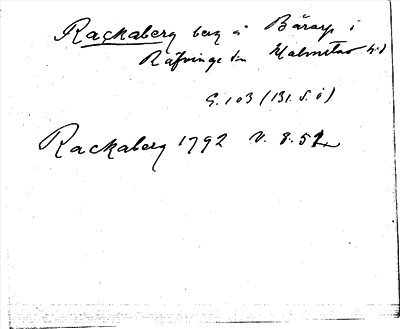 Rackaberg berg å Bårarp i
Räfvinge sn Halmstad hd
G. 103 (131. S. ö)
Rackaberg 1792 V. 8. 52